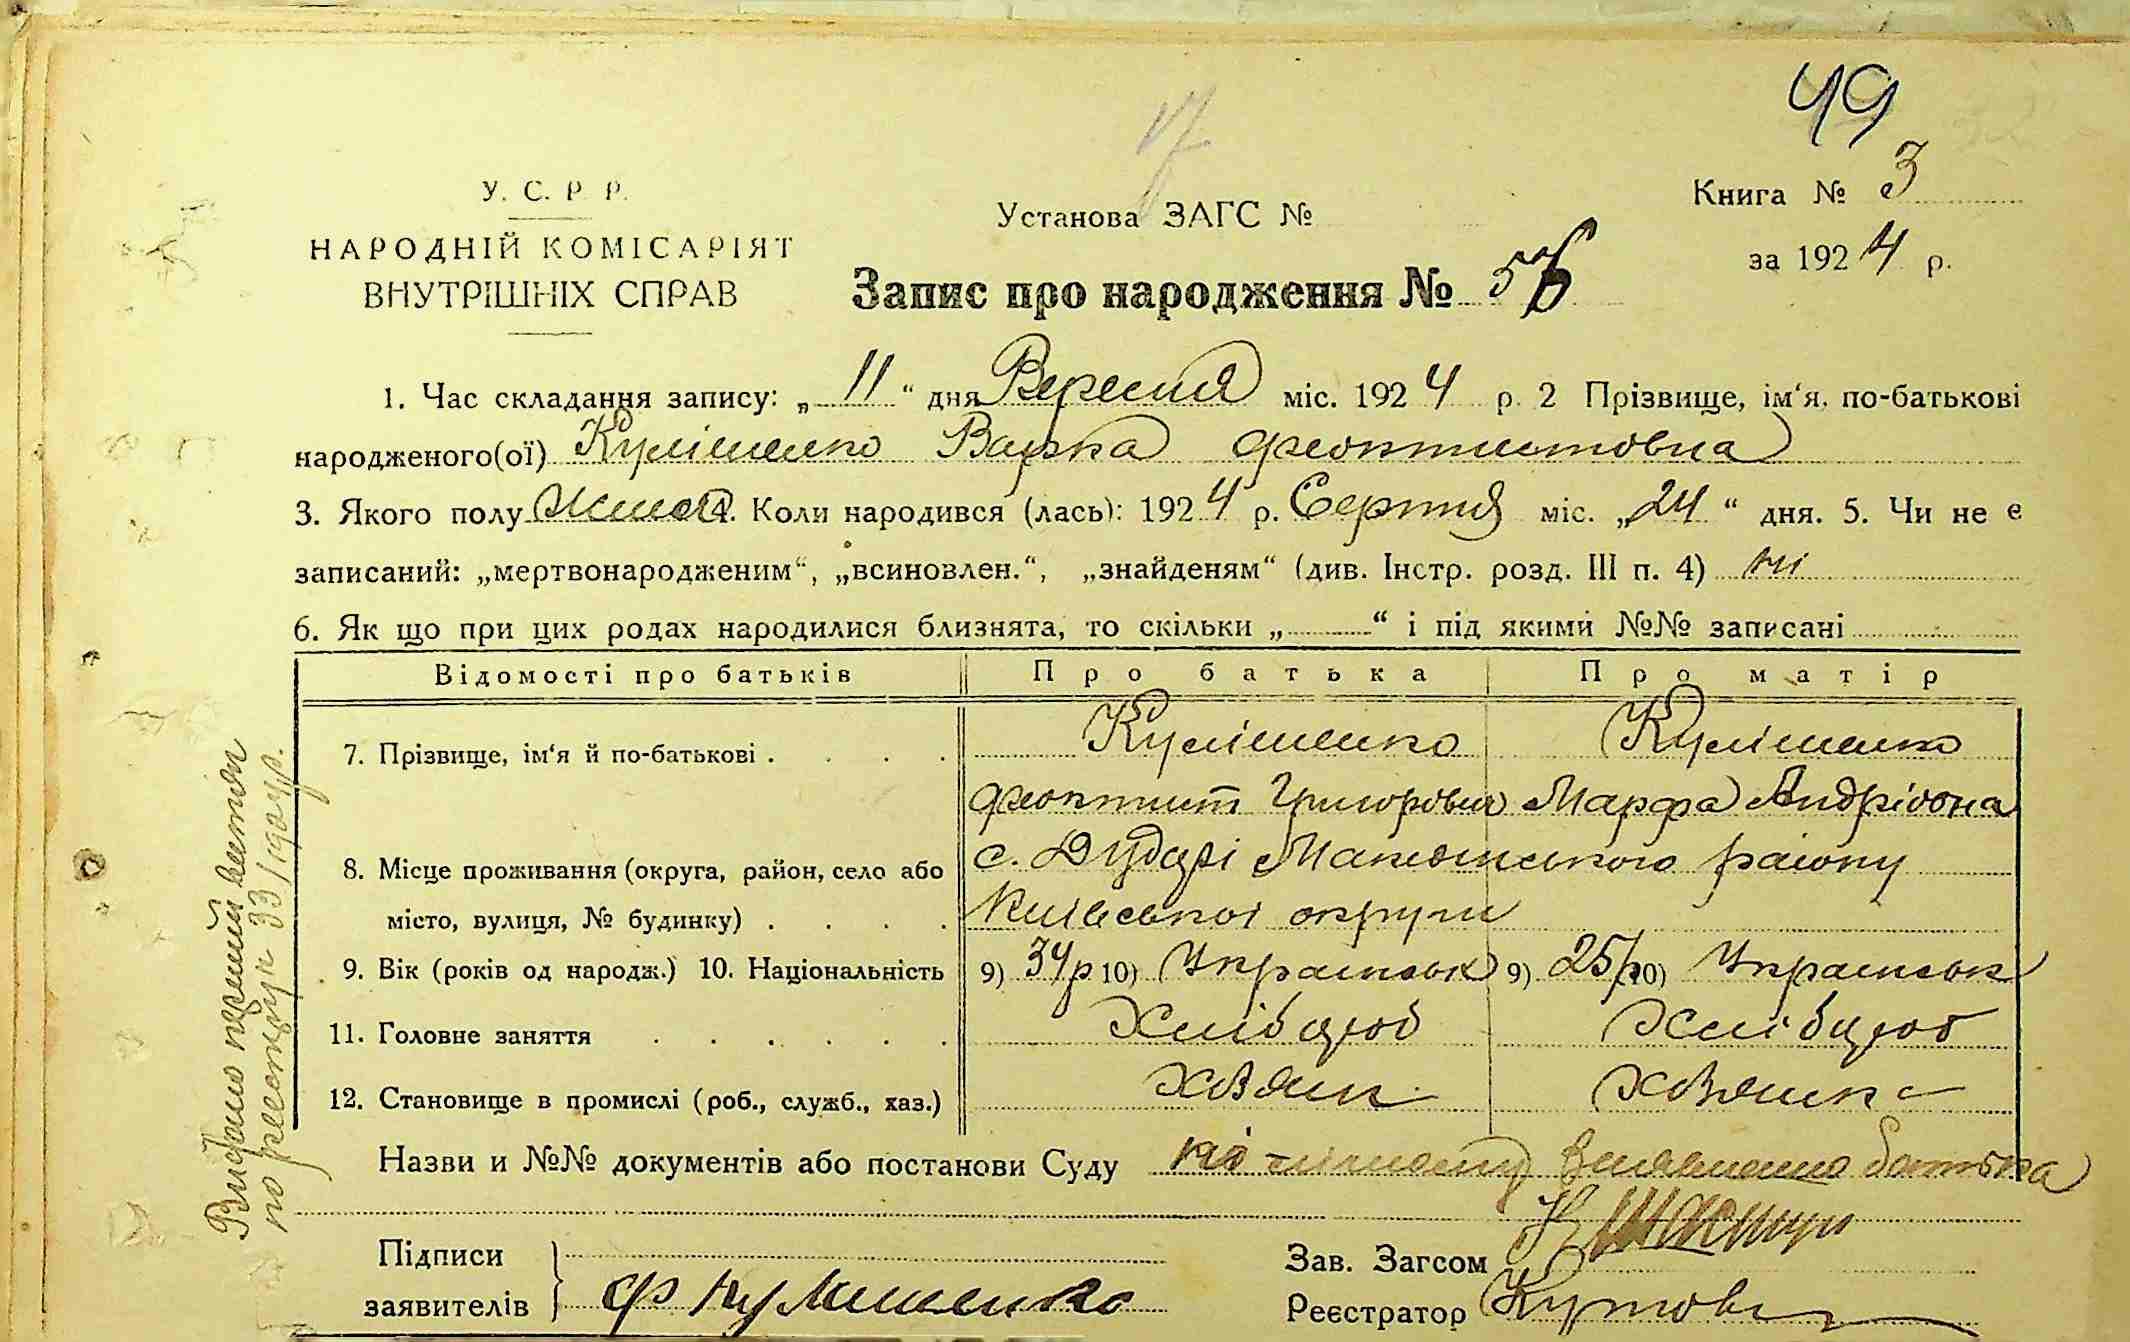 49
У. С. Р. Р.
НАРОДНІЙ КОМІСАРІЯТ
ВНУТРІШНІХ СПРАВ
Установа ЗАГС №
Книга № 3
за 1924 р.
Запис про народження № 56
1. Час складання запису: „ 11 “ дня Вересня міс. 1924 р. 2 Прізвище, ім‘я, по-батькові
народженого(ої) Кулішенко Варка Феоктистовна
3. Якого полу жіноч. 4. Коли народився (лась): 1924 р. Серпня міс. „ 24 “ дня. 5. Чи не є
записаний: „мертвонародженим“, „всиновлен.“, „знайденям“ (див. Інстр. розд. III п. 4) ні
6. Як що при цих родах народилися близнята, то скільки „ “ і під якими №№ записані
Відомості про батьків Про батька Про матір
7. Прізвище, ім‘я й по-батькові . . . . Кулішенко Кулішенко
Феоктист Григорович Марфа Андрієвна
8. Місце проживання (округа, район, село або с. Дударі Макошинського району
місто, вулиця, № будинку) . . . . Київської округи
9. Вік (років од народж.) 10. Національність 9) 34 р 10) Українськ 9) 25 р 10) Українськ
11. Головне заняття . . . . . . Хлібороб Хлібороб
12. Становище в промислі (роб., служб., хаз.) хозяин хозяика
Назви и №№ документів або постанови Суду по заявлению батька
Підписи
заявителів } Ф Кулишенко
Зав. Загсом
Реєстратор
Видано перший витяг
по реестру № 33/ 192 р.